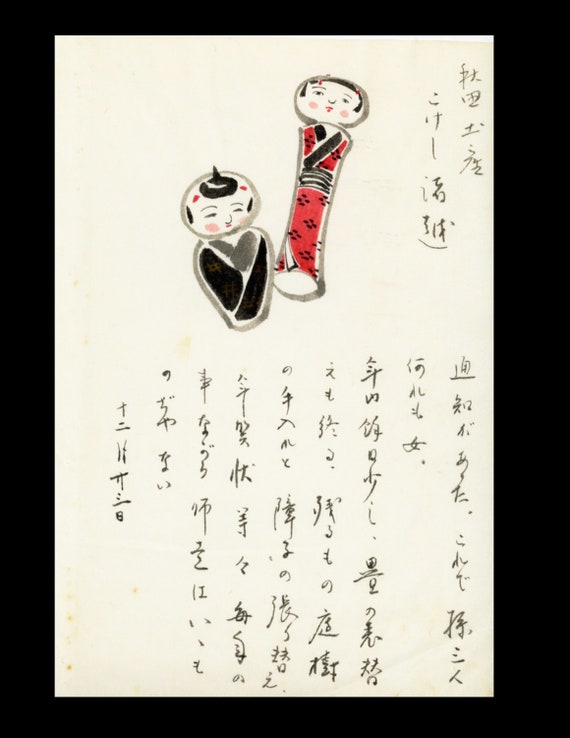 秋田土産
こけし諸越
通知があった。これで孫三人
何れも女。
年内餘日少し、畳の表替
えも終る、残るもの庭樹
の手入れと障子の張り替え、
年賀状等々毎年の
事ながら師走はいゝも
のぢやない
十二月廿三日